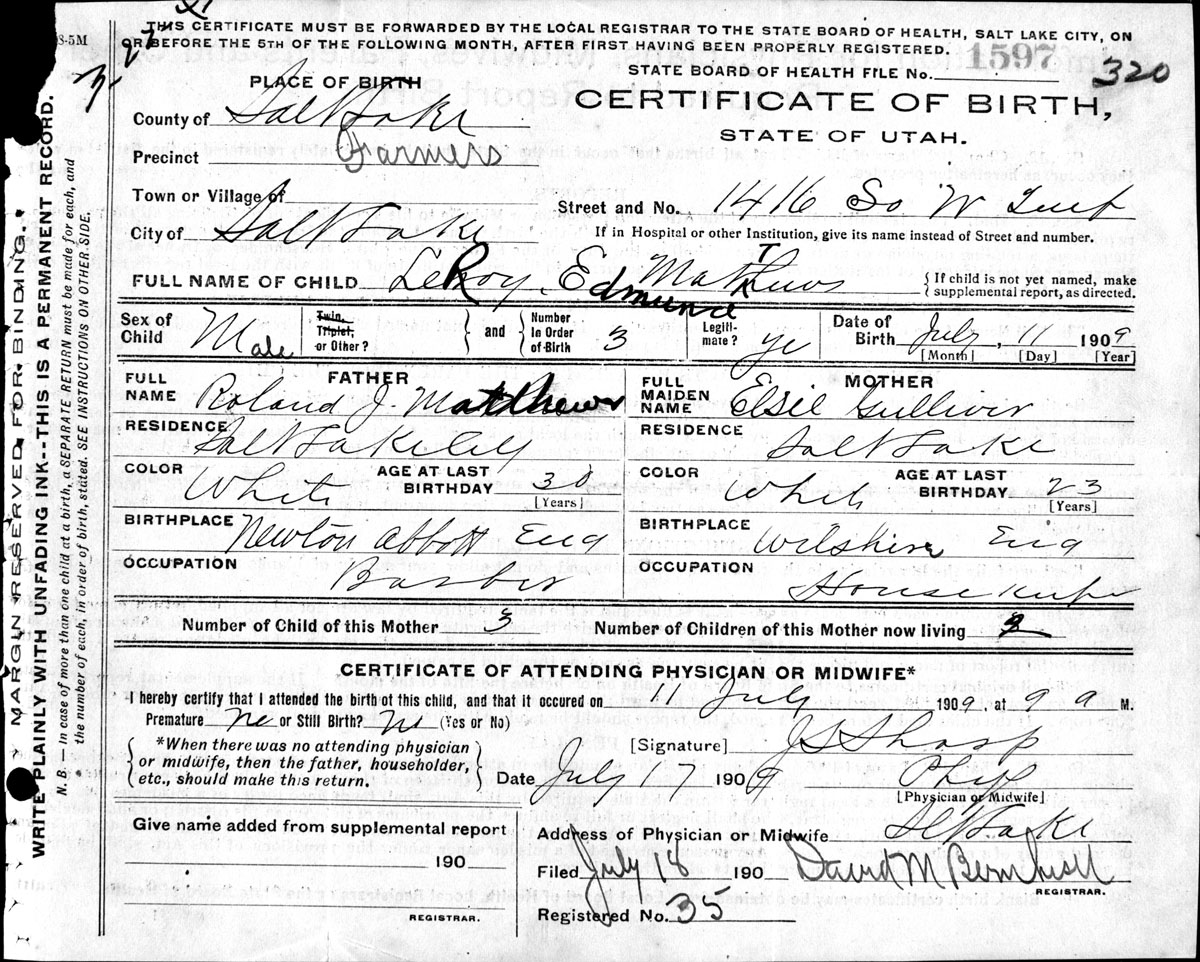 THIS CERTIFICATE MUST BE FORWARDED BY THE LOCAL REGISTRAR TO THE STATE BOARD OF HEALTH, SALT LAKE CITY, ON
OR BEFORE THE 5TH OF THE FOLLOWING MONTH, AFTER FIRST HAVING BEEN PROPERLY REGISTERED.
8-5M
1597
320
PLACE OF BIRTH
STATE BOARD OF HEALTH FILE No.
CERTIFICATE OF BIRTH,
STATE OF UTAH.
County of Salt Lake
Precinct Farmers
Town or Village of
Street and No. 1416 So W Tem
City of Salt Lake
If in Hospital or other Institution, give its name instead of Street and number.
FULL NAME OF CHILD LeRoy Edmund Matthews
{ If child is not yet named, make
supplemental report, as directed.
Sex of Child Male
Twin, Triplet, or Other?
and
Number in Order of Birth 3
Legitimate? ye
Date of Birth July, 11 1909
[Month] [Day] [Year]
FATHER
FULL NAME Roland J. Matthews
RESIDENCE Salt Lake City
COLOR White
AGE AT LAST BIRTHDAY 30
[Years]
BIRTHPLACE Newton Abbott Eng
OCCUPATION Barber
MOTHER
FULL MAIDEN NAME Elsie Gulliver
RESIDENCE Salt Lake
COLOR White
AGE AT LAST BIRTHDAY 23
[Years]
BIRTHPLACE Wilshire Eng
OCCUPATION House keeper
Number of Child of this Mother 3
Number of Children of this Mother now living
CERTIFICATE OF ATTENDING PHYSICIAN OR MIDWIFE*
I hereby certify that I attended the birth of this child, and that it occured on 11 July 1909, at 9 a M.
Premature No or Still Birth? No (Yes or No)
*When there was no attending physician
or midwife, then the father, householder,
etc., should make this return.
[Signature] J S Sharp
Date July 17 1909 Phys
[Physician or Midwife]
Give name added from supplemental report
190
REGISTRAR.
Address of Physician or Midwife Salt Lake
Filed July 18 1909 David M
REGISTRAR.
Registered No. 35
MARGIN RESERVED FOR BINDING.
WRITE PLAINLY WITH UNFADING INK--THIS IS A PERMANENT RECORD.
N. B.—In case of more than one child at a birth, a SEPARATE RETURN must be made for each, and
the number of each, in order of birth, stated. SEE INSTRUCTIONS ON OTHER SIDE.